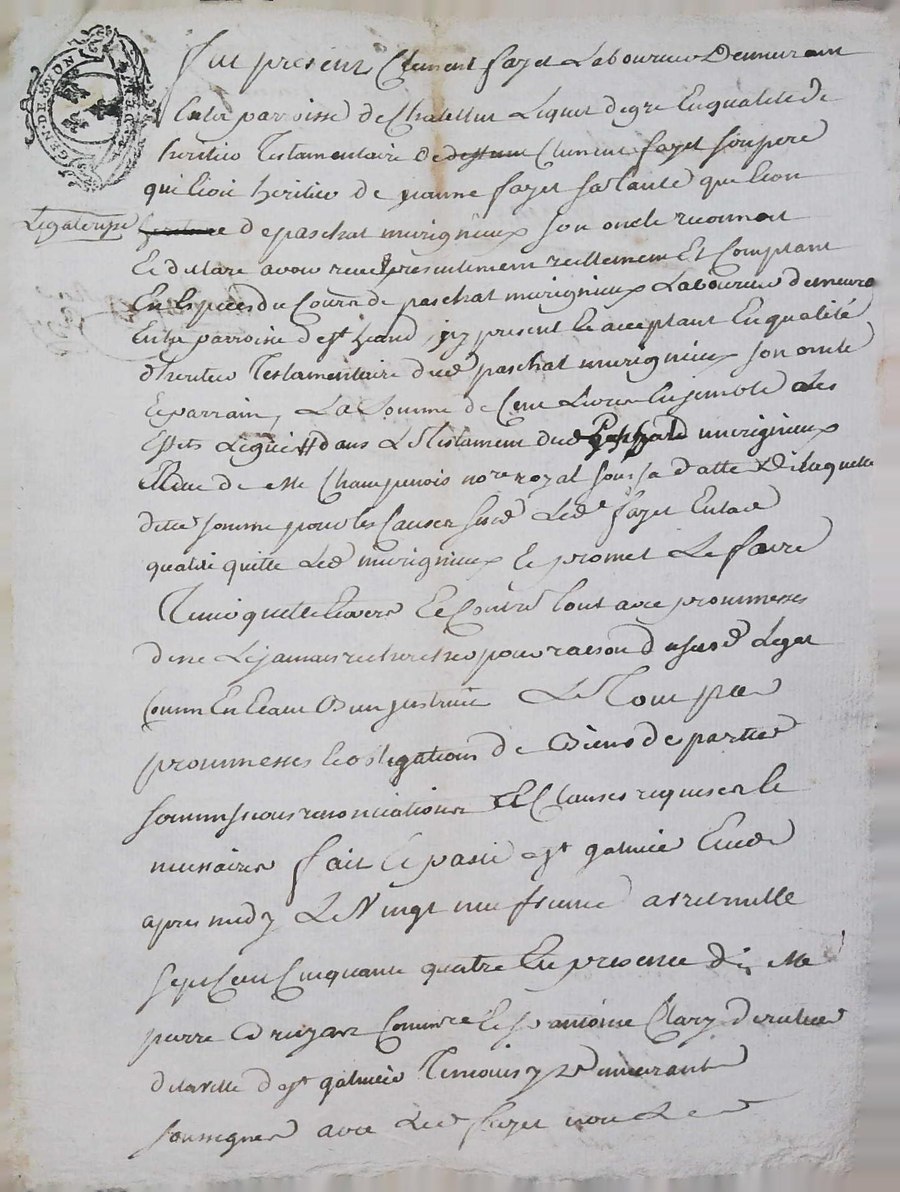 GEN DE LYON
Fut present Clement fayet Laboureur Demeurant
En la parroisse de Chatellur Lequel degre En qualité de
heritier Testamentaire de deffunt Clement fayet son pere
qui Etoit heritier de jeanne fayet sa tante quelion
Legaterisse
de paschat murignieux son oncle reconnoit
Et declare avoir receu presentement reellement Et Comptant
En Espèces du Cours de paschat murigneux Laboureur demeurant
En la parroisse de st heand, icy present Et acceptant En qualité
dheritier Testamentaire dud paschat murigneux son oncle
Et parrain, La Somme de Cent Livres Ensemble Les
Effets Legués dans Le Testament dud murigneux
Receu de Me Champenois nore royal sous sa datte de laquelle
dite somme pour les Causes susd Led fayet En lad
qualité quitte Led murigneux Et promet Le faire
Tenir quitte Envers Et Contre tout avec prommesses
de ne Le jamais rechercher pour raison dususd Legat
Comm En Eaux Bien justruit Le Tout par
prommesses Et obligations de Biens de parties
sommissions renonciations Et Clauses requises Et
necessaires fait Et passé a st galmier Etude
apres midy Le Vingt neuf jenvier mille
sept Cent Cinquante quatre En presence de Me
pierre Commre Et sr antoine Clary
de la ville de st galmier Temoins y demeurant
soussignes avec Led fayet non Led